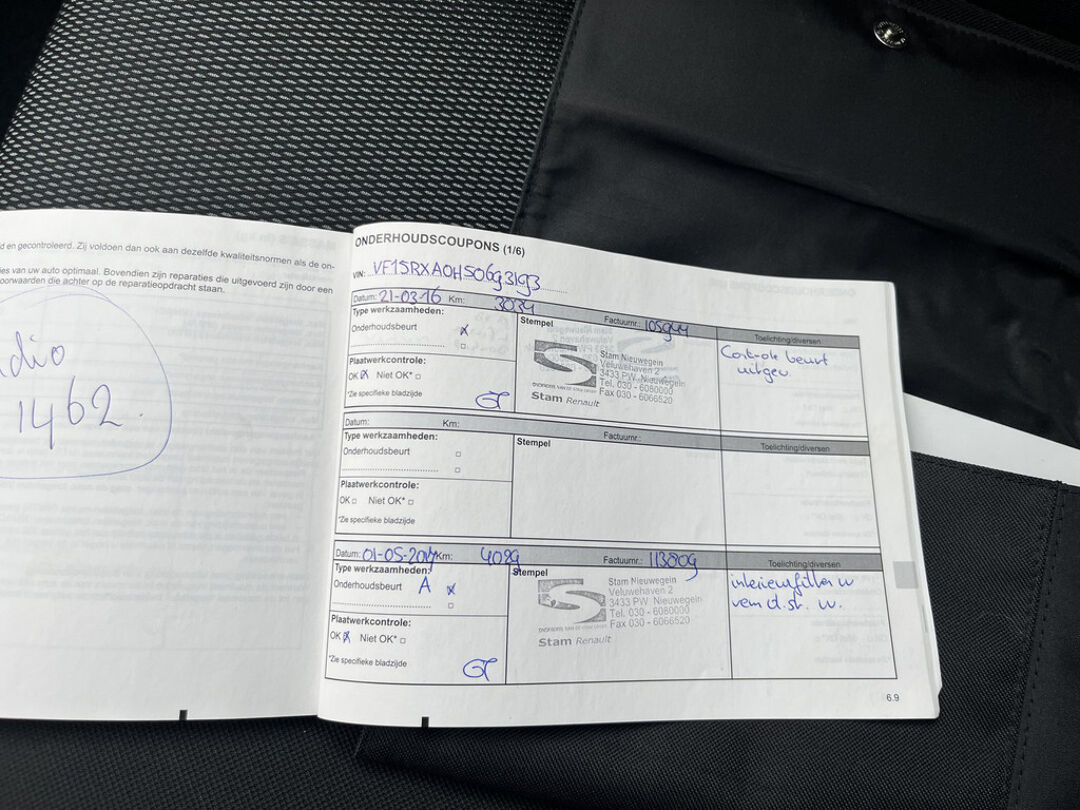 d en gecontroleerd. Zij voldoen dan ook aan dezelfde kwaliteitsnormen als de on-
ies van uw auto optimaal. Bovendien zijn reparaties die uitgevoerd zijn door een
oorwaarden die achter op de reparatieopdracht staan.
dio
1462.
ONDERHOUDSCOUPONS (1/6)
VIN: VF1SRXAOHS0693193
Datum: 21-03-16 Km: 3034 Factuurnr.: 105944
Type werkzaamheden:
Stempel
Toelichting/diversen
Onderhoudsbeurt x
Plaatwerkcontrole:
OK x Niet OK*
*Zie specifieke bladzijde
Stam Nieuwegein
Veluwehaven 2
3433 PW Nieuwegein
Tel. 030 - 6080000
Fax 030 - 6066520
Stam Renault
Controle beurt
uitgev.
Datum: Km: Factuurnr.:
Type werkzaamheden:
Stempel
Toelichting/diversen
Onderhoudsbeurt
Plaatwerkcontrole:
OK Niet OK*
*Zie specifieke bladzijde
Datum: 01-05-2017 Km: 4089 Factuurnr.: 113809
Type werkzaamheden:
Stempel
Toelichting/diversen
Onderhoudsbeurt A x
Plaatwerkcontrole:
OK x Niet OK*
*Zie specifieke bladzijde
Stam Nieuwegein
Veluwehaven 2
3433 PW Nieuwegein
Tel. 030 - 6080000
Fax 030 - 6066520
Stam Renault
interieurfilter w
rem d.st. w.
6.9